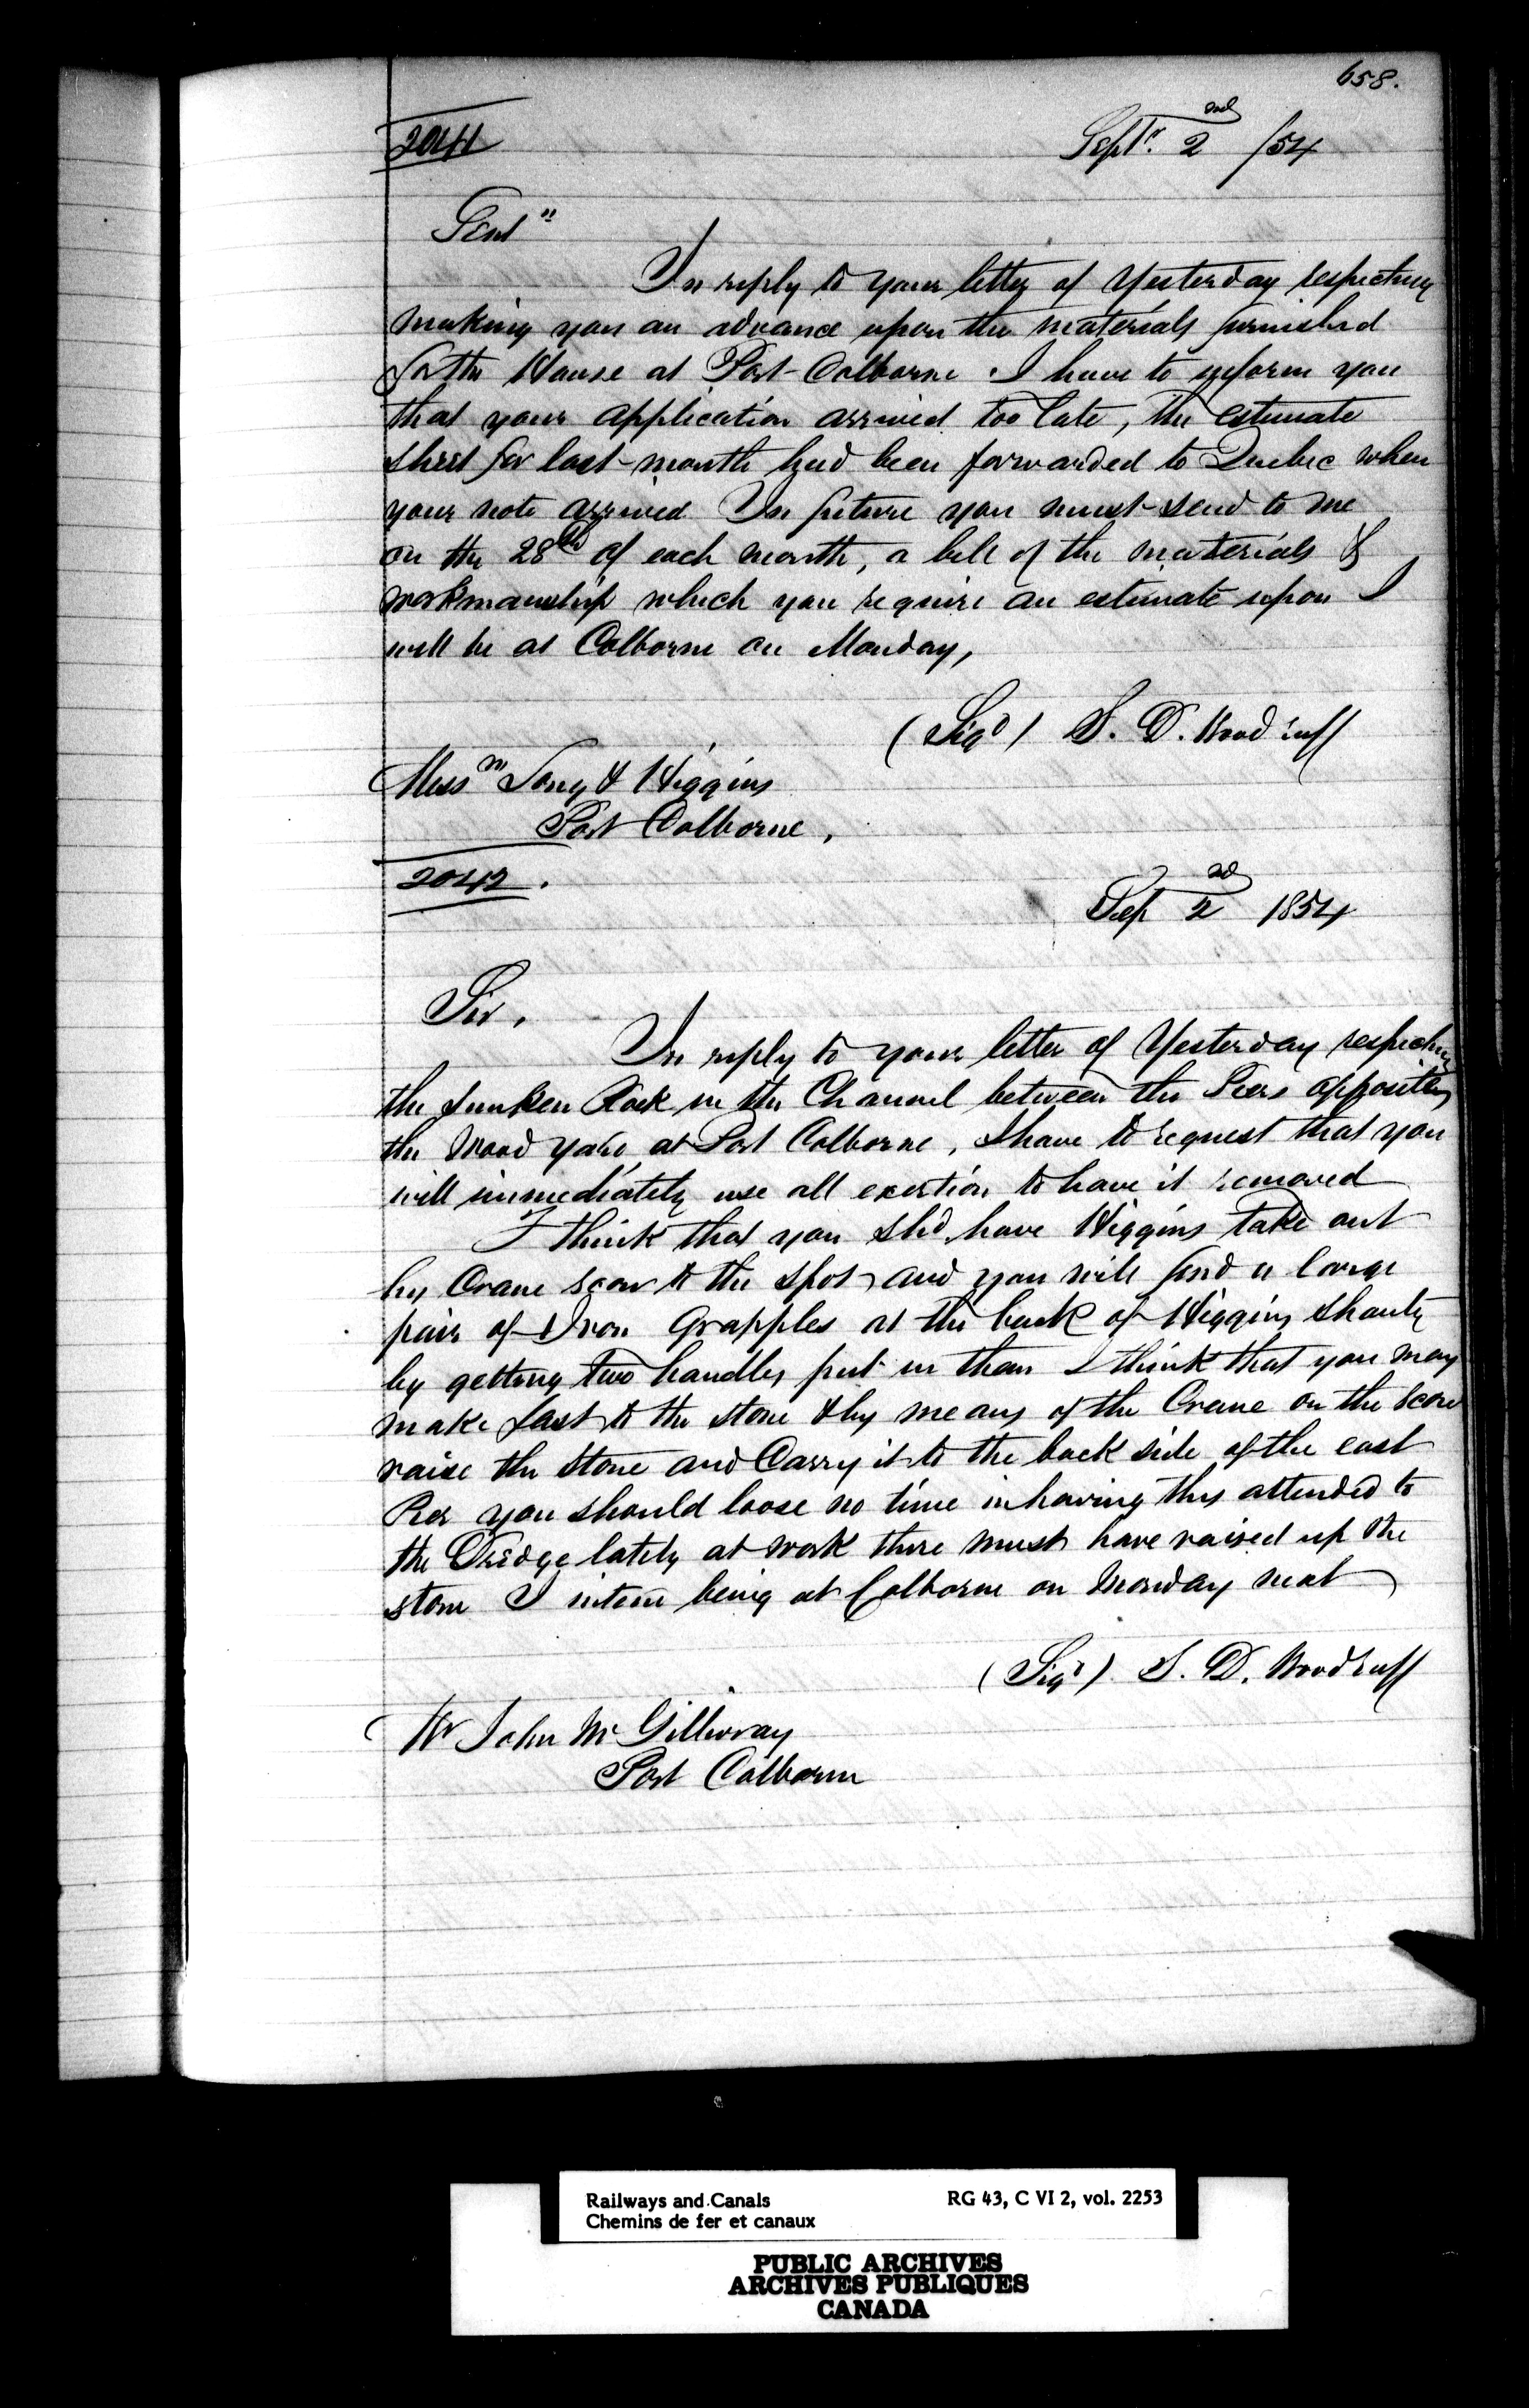 658.
2041
Septr. 2nd /54
Gentn
In reply to your letter of Yesterday respecting
making you an advance upon the materials furnished
for the House at Port-Colborne. I have to inform you
that your application arrived too late, the estimate
sheet for last month had been forwarded to Quebec when
your note arrived In future you must send to me
on the 28th of each month, a bill of the materials &
workmanship which you require an estimate upon I
will be at Colborne on Monday,
(Sigd) S. D. Woodruff
Messrs Long & Higgins
Port Colborne,
2042.
Sep 2nd 1854
Sir,
In reply to your letter of Yesterday respecting
the sunken Rock in the Channel between the Piers opposite
the Wood yard at Port Colborne, I have to request that you
will immediately use all exertion to have it removed
I think that you shd have Higgins take out
his Crane scow to the spot and you will find a large
pair of Iron Grapples at the back of Higgins Shanty
by getting two handles put in them I think that you may
make fast to the stone & by means of the Crane on the Scow
raise the stone and Carry it to the back side of the east
Pier you should loose no time in having this attended to
the Dredge lately at work there must have raised up the
stone I intend being at Colborne on Monday next
(Sigd) S. D. Woodruff
Mr John McGillivray
Port Colborne
Railways and Canals
Chemins de fer et canaux
RG 43, C VI 2, vol. 2253
PUBLIC ARCHIVES
ARCHIVES PUBLIQUES
CANADA